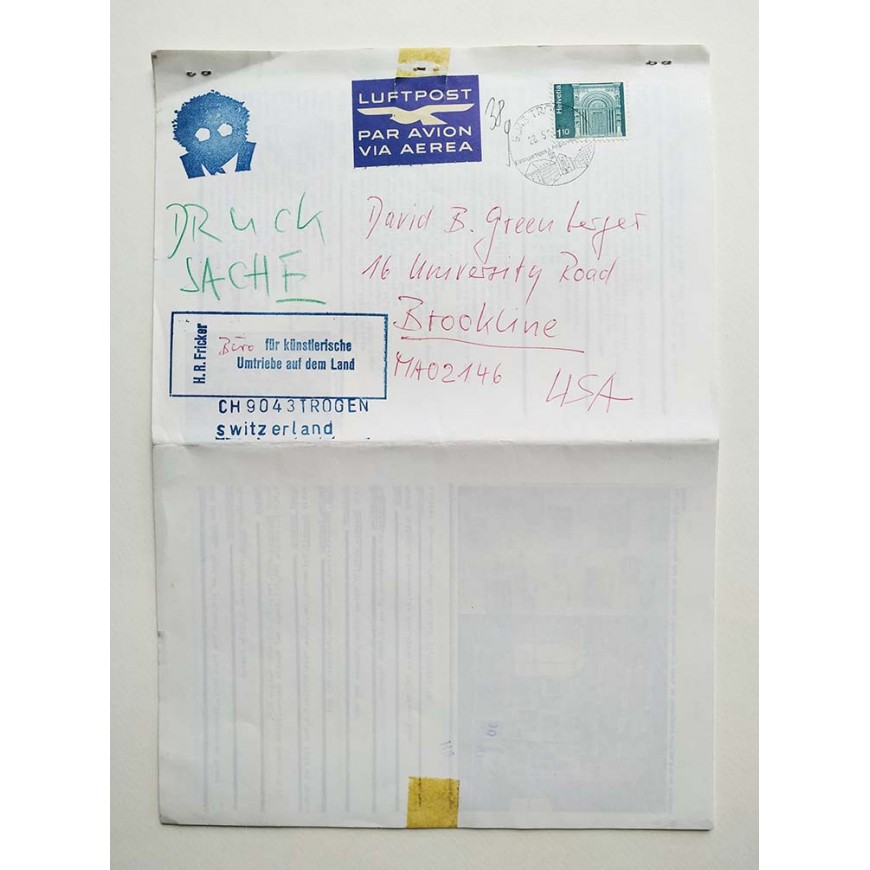 LUFTPOST
PAR AVION
VIA AEREA
38g
Helvetia
1.10
DRUCK
SACHE
David B. Greenberger
16 University Road
Brookline
MA 02146
USA
H. R. Fricker
Büro für künstlerische
Umtriebe auf dem Land
CH 9043 TROGEN
switzerland